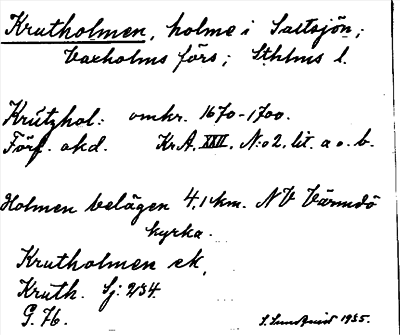 Krutholmen, holme i Saltsjön;
Vaxholms förs; Sthlms l.
Krútzhol: omkr. 1670-1700.
Förf. okd. Kr.A. XXVI. N:o 2. lit. a o. b.
Holmen belägen 4.1 km. NV Värmdö
kyrka.
Krutholmen ek,
Kruth. Sj: 234.
G. 76.
S. Sundqvist 1935.